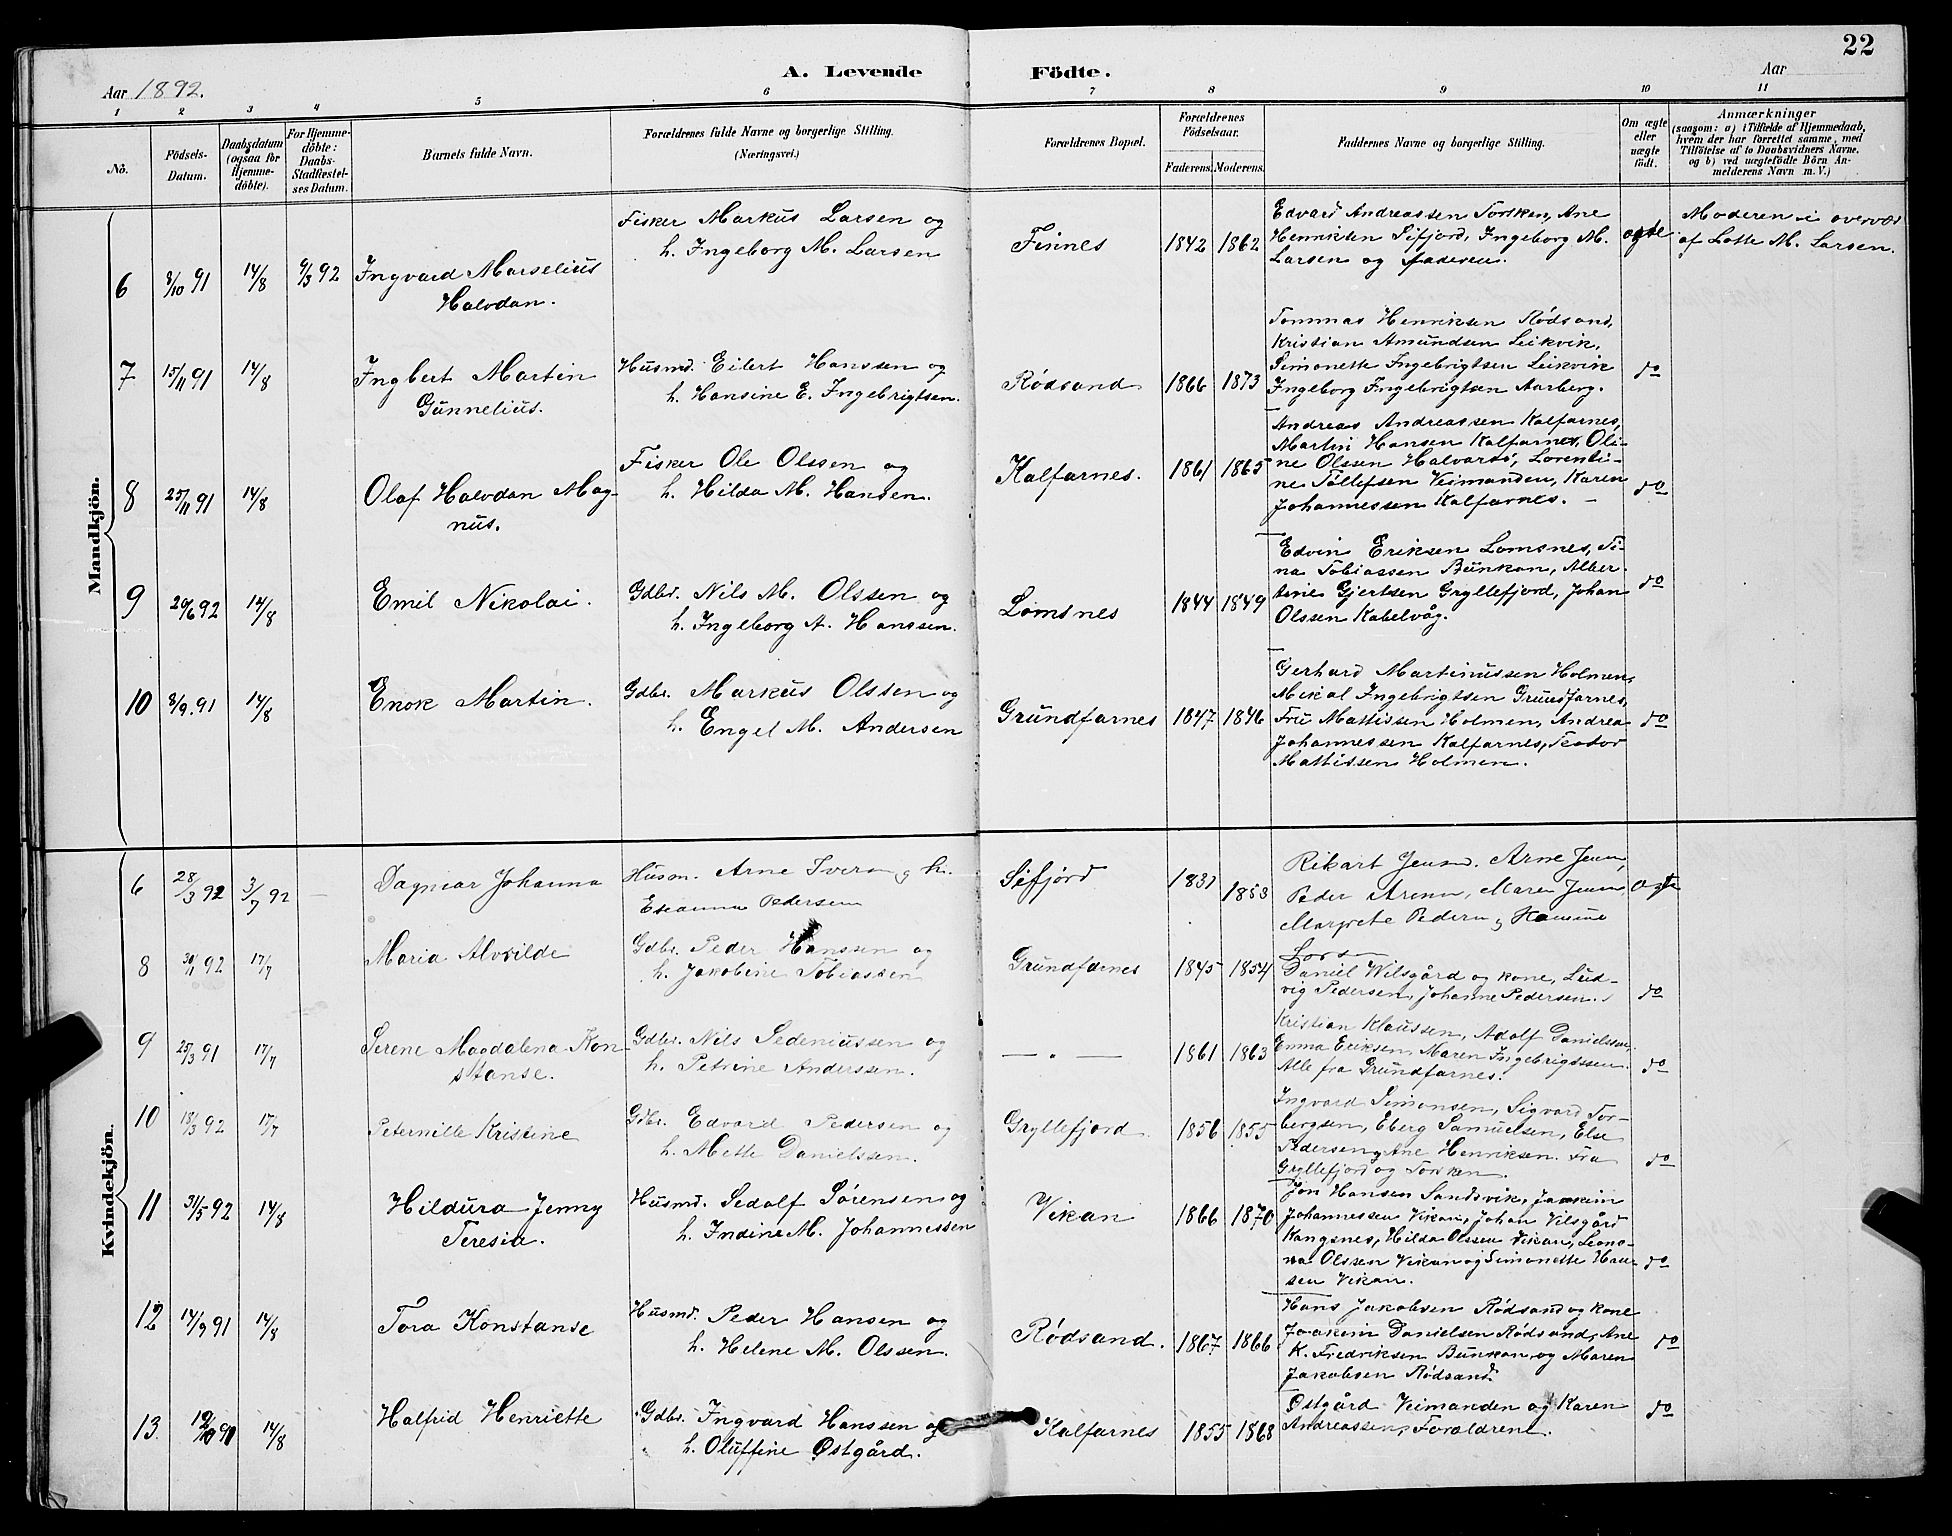 22
A. Levende Födte.
Aar 1892.
Aar
1 2 3 4 5 6 7 8 9 10 11
No.
Födsels-Datum.
Daabsdatum (ogsaa for Hjemmedöbte).
For Hjemmedöbte: Daabs-Stadfæstelses Datum.
Barnets fulde Navn.
Forældrenes fulde Navne og borgerlige Stilling. (Næringsvei.)
Forældrenes Bopæl.
Forældrenes Födselsaar.
Faderens. Moderens.
Faddernes Navne og borgerlige Stilling.
Om ægte eller uægte födt.
Anmærkninger
(saasom: a) i Tilfælde af Hjemmedaab, hvem der har forrettet samme, med Tilföielse af to Daabsvidners Navne, og b) ved uægtefödte Börn Anmelderens Navn m. V.)
Mandkjön.
6 8/10 91 14/8 9/3 92 Ingvard Marselius
Halvdan.
Fisker Markus Larsen og
h. Ingeborg M. Larsen
Finnes 1842 1862
Edvard Andreassen Torsken, Ane
Henriksen Sifjord, Ingeborg M.
Larsen og faderen.
ægte
Moderen i overvær
af Lotte M. Larsen.
7 15/11 91 14/8 Ingbert Martin
Gunnelius.
Husmd. Eilert Hanssen og
h. Hansine E. Ingebrigtsen.
Rödsand 1866 1873
Tommas Henriksen Rödsand,
Kristian Amundsen Leikvik,
Simonette Ingebrigtsen Leikvik
Ingeborg Ingebrigtsen Aarberg.
do
8 25/11 91 14/8 Olaf Halvdan Mag-
nus.
Fisker Ole Olssen og
h. Hilda M. Hansen.
Kalfarnes. 1861 1865
Andreas Andreassen Kalfarnes,
Martin Hansen Kalfarnes, Oli-
ne Olssen Halvardsö, Lorenti-
ne Tollefsen Veimanden, Karen
Johannessen Kalfarnes.
do
9 29/6 92 14/8 Emil Nikolai.
Gdbr. Nils M. Olssen og
h. Ingeborg A. Hanssen.
Lomsnes 1844 1849
Edvin Eriksen Lomsnes, Ti-
na Tobiassen Bunkan, Alber-
tine Gjertsen Gryllefjord, Johan
Olssen Kabelvåg.
do
10 8/9 91 14/8 Enok Martin.
Gdbr. Markus Olssen og
h. Engel M. Andersen
Grundfarnes 1847 1846
Gerhard Martinussen Holmen,
Mikal Ingebrigtsen Grundfarnes,
Fru Mattissen Holmen, Andrea
Johannessen Kalfarnes, Teodor
Mattissen Holmen.
do
Kvindekjön.
6 28/3 92 3/7 92 — Dagmar Johanna
Husm. Arne Iversn og h.
Pedersen
Sifjord 1853
Rikart Jensen. Arne Jensn,
Peder Arensn, Maren Jensen
Margrete Pedersn og Hansine
Lorsn
8 30/1 92 17/7 Maria Alvilde
Gdbr. Peder Hanssen og
h. Jakobine Tobiassen
Grundfarnes 1845 1854
Daniel Wilsgård og kone, Lud-
vig Pedersen, Johanne Pedersen.
do
9 25/3 91 17/7 Serene Magdalena Kon-
stanse.
Gdbr. Nils Sedeniussen og
h. Petrine Anderssen.
— " — 1861 1863
Kristian Klaussen, Adolf Danielssen,
Emma Eriksen, Maren Ingebrigtssen.
Alle fra Grundfarnes.
do
10 18/3 92 17/7 Peternille Kristine
Gdbr. Edvard Pedersen og
h. Mette Danielssen.
Gryllefjord 1856 1855
Ingvard Simonsen, Sigvard Tor-
bergsen, Eberg Samuelsen, Else
Pedersen, Ane Henriksen. Fra
Gryllefjord og Torsken
do
11 31/5 92 14/8 Hildura Jenny
Teresia.
Husmd. Sedolf Sørensen og
h. Indine M. Johannessen
Vikan 1866 1870
Jon Hansen Sandsvik, Joakim
Johannessen Vikan, Johan Vilsgård
Kongsnes, Hilda Olssen Vikan, Leono-
ra Olssen Vikan og Simonette Han-
sen Vikan.
do
12 14/9 91 14/8 Tora Konstanse
Husmd. Peder Hansen og
h. Helene M. Olssen.
Rödsand. 1867 1866
Hans Jakobsen Rödsand og kone
Joakim Danielsen Rödsand, Ane
K. Fredriksen Bunkan, og Maren
Jakobsen Rødsand.
do
13. 14/8 Halfrid Henriette
Gdbr. Ingvard Hanssen og
h. Oluffine Østgård.
Kalfarnes 1855 1868
Østgård Veimanden og Karen
Andreassen, Foræeldrene.
do